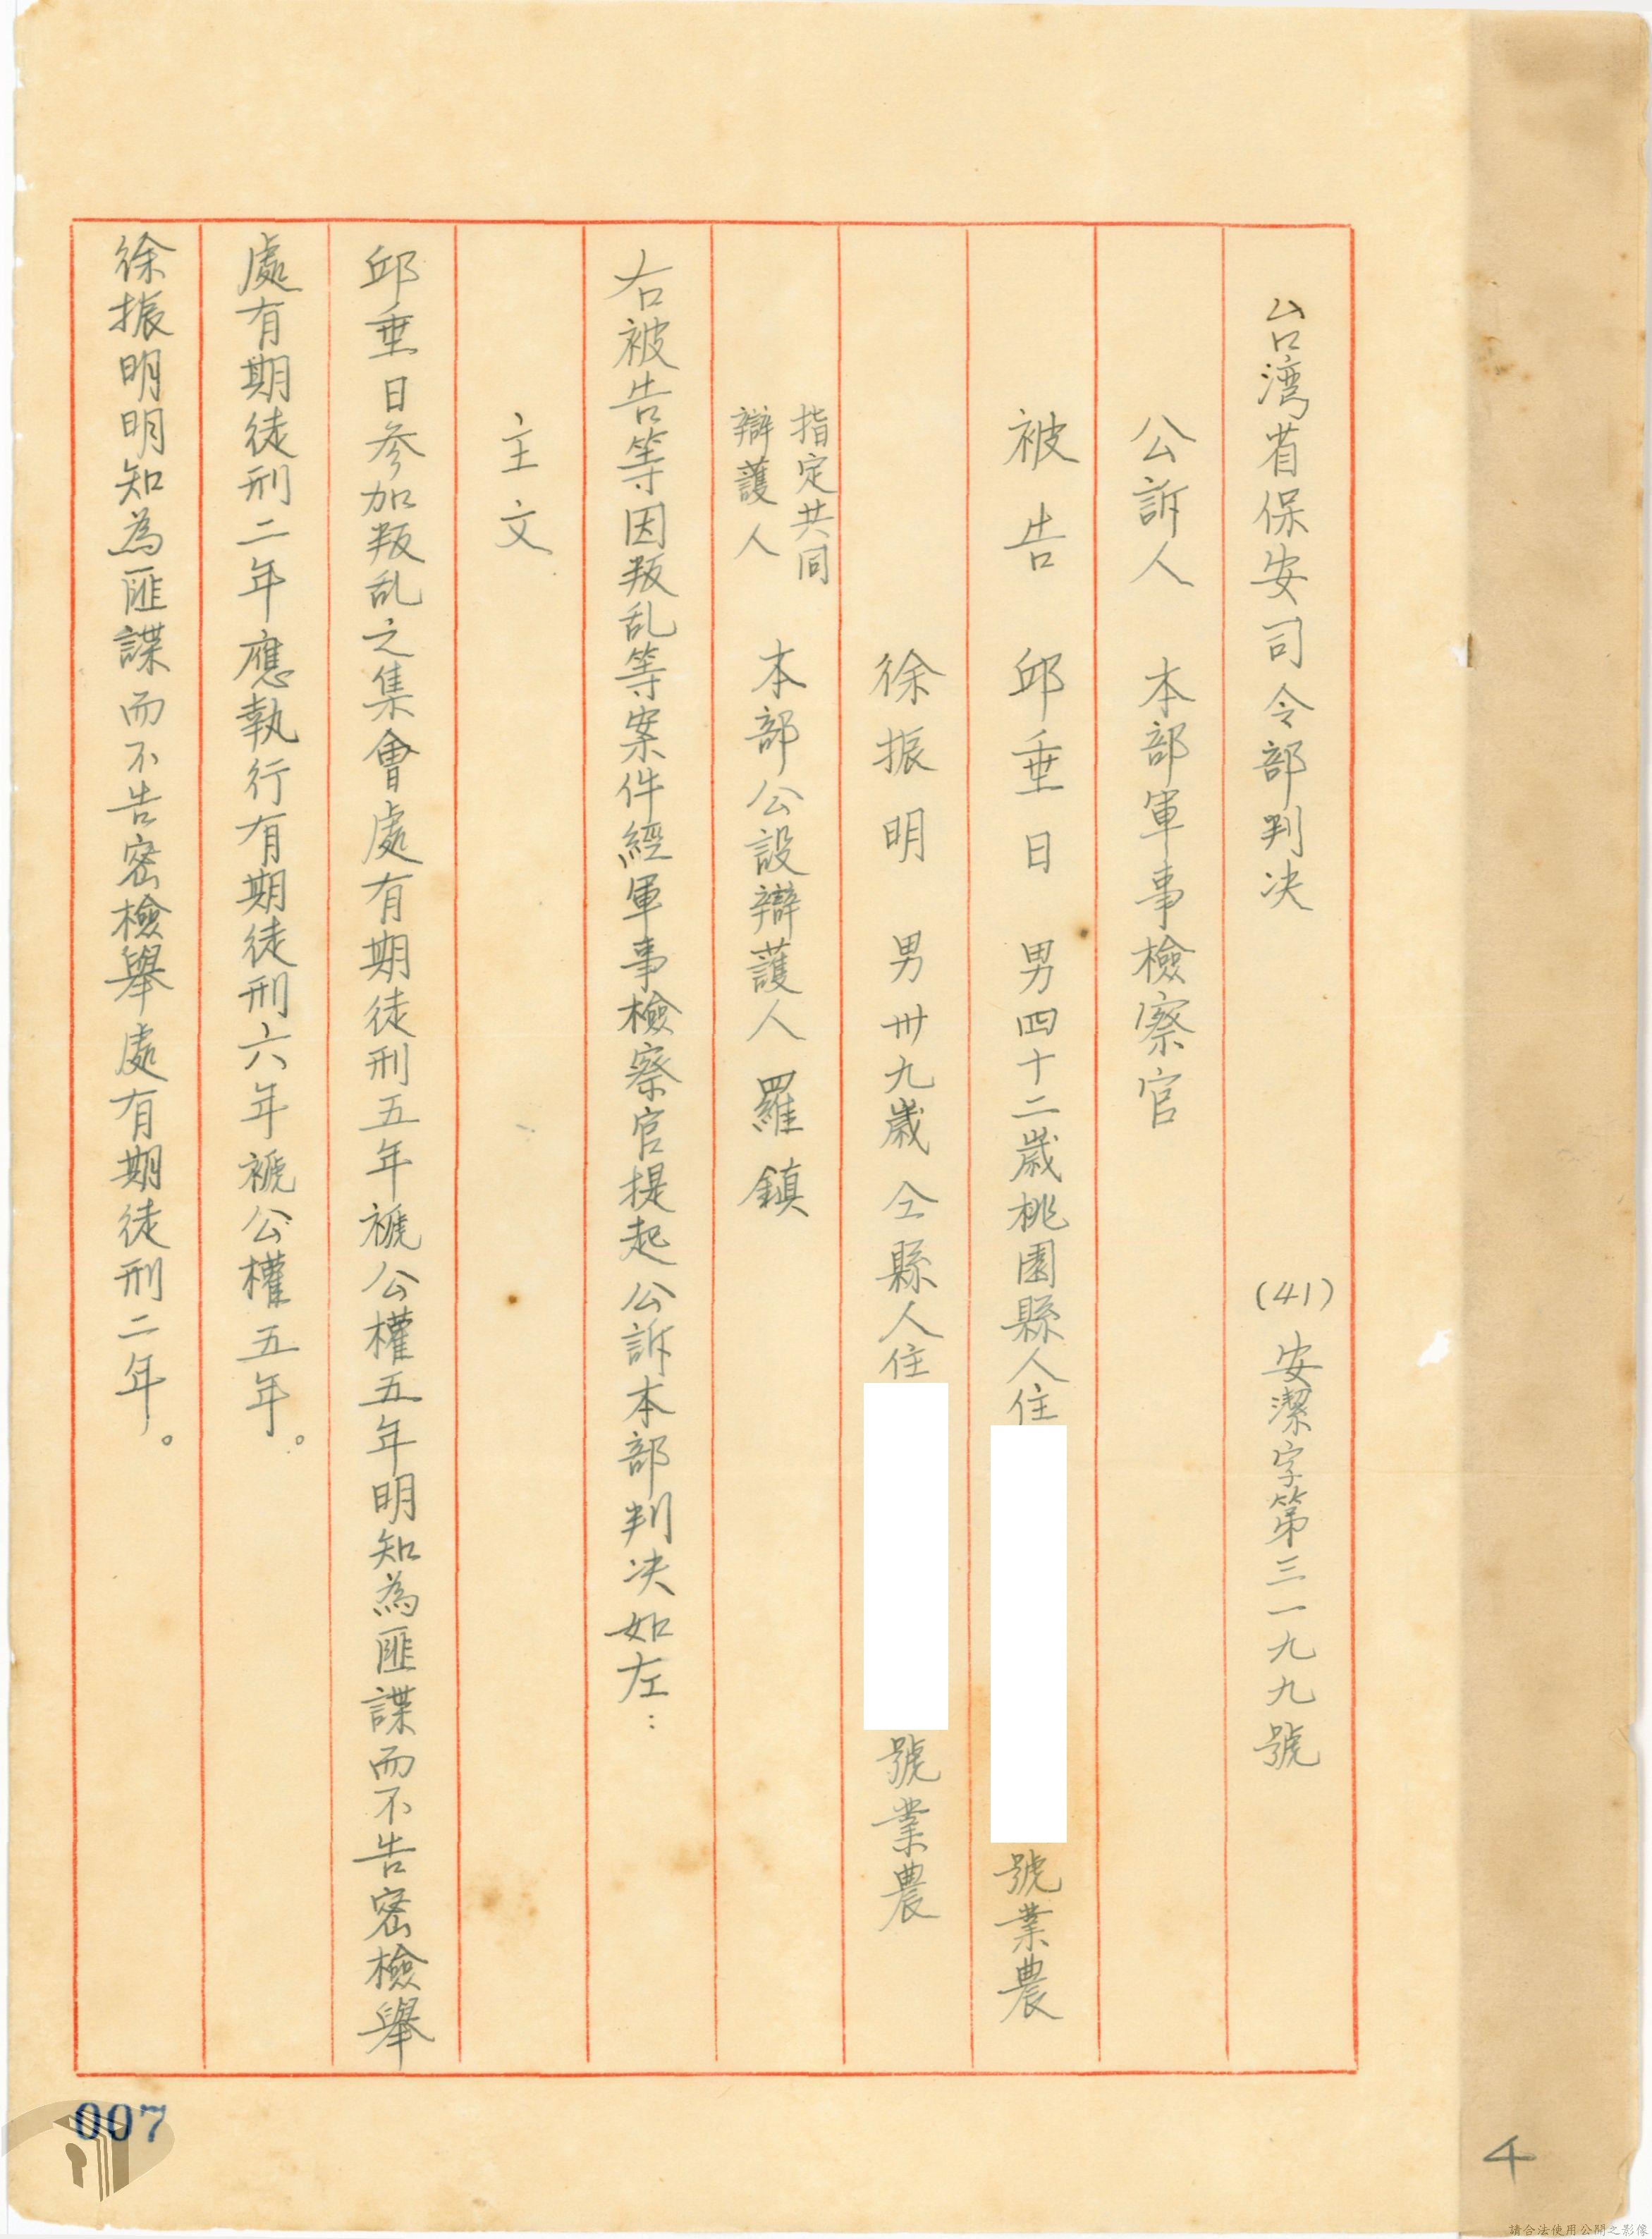 台湾省保安司令部判决　(41)安潔字第三一九九號
公訴人　本部軍事檢察官
被告　邱垂日　男四十二歲桃園縣人住　號業農
徐振明　男卅九歲仝縣人住　號業農
指定共同
辯護人　本部公設辯護人羅鎮
右被告等因叛乱等案件經軍事檢察官提起公訴本部判决如左：
主文
邱垂日參加叛乱之集會處有期徒刑五年褫公權五年明知為匪諜而不告密檢舉
處有期徒刑二年應執行有期徒刑六年褫公權五年。
徐振明明知為匪諜而不告密檢舉處有期徒刑二年。
007
4
請合法使用公開之影像